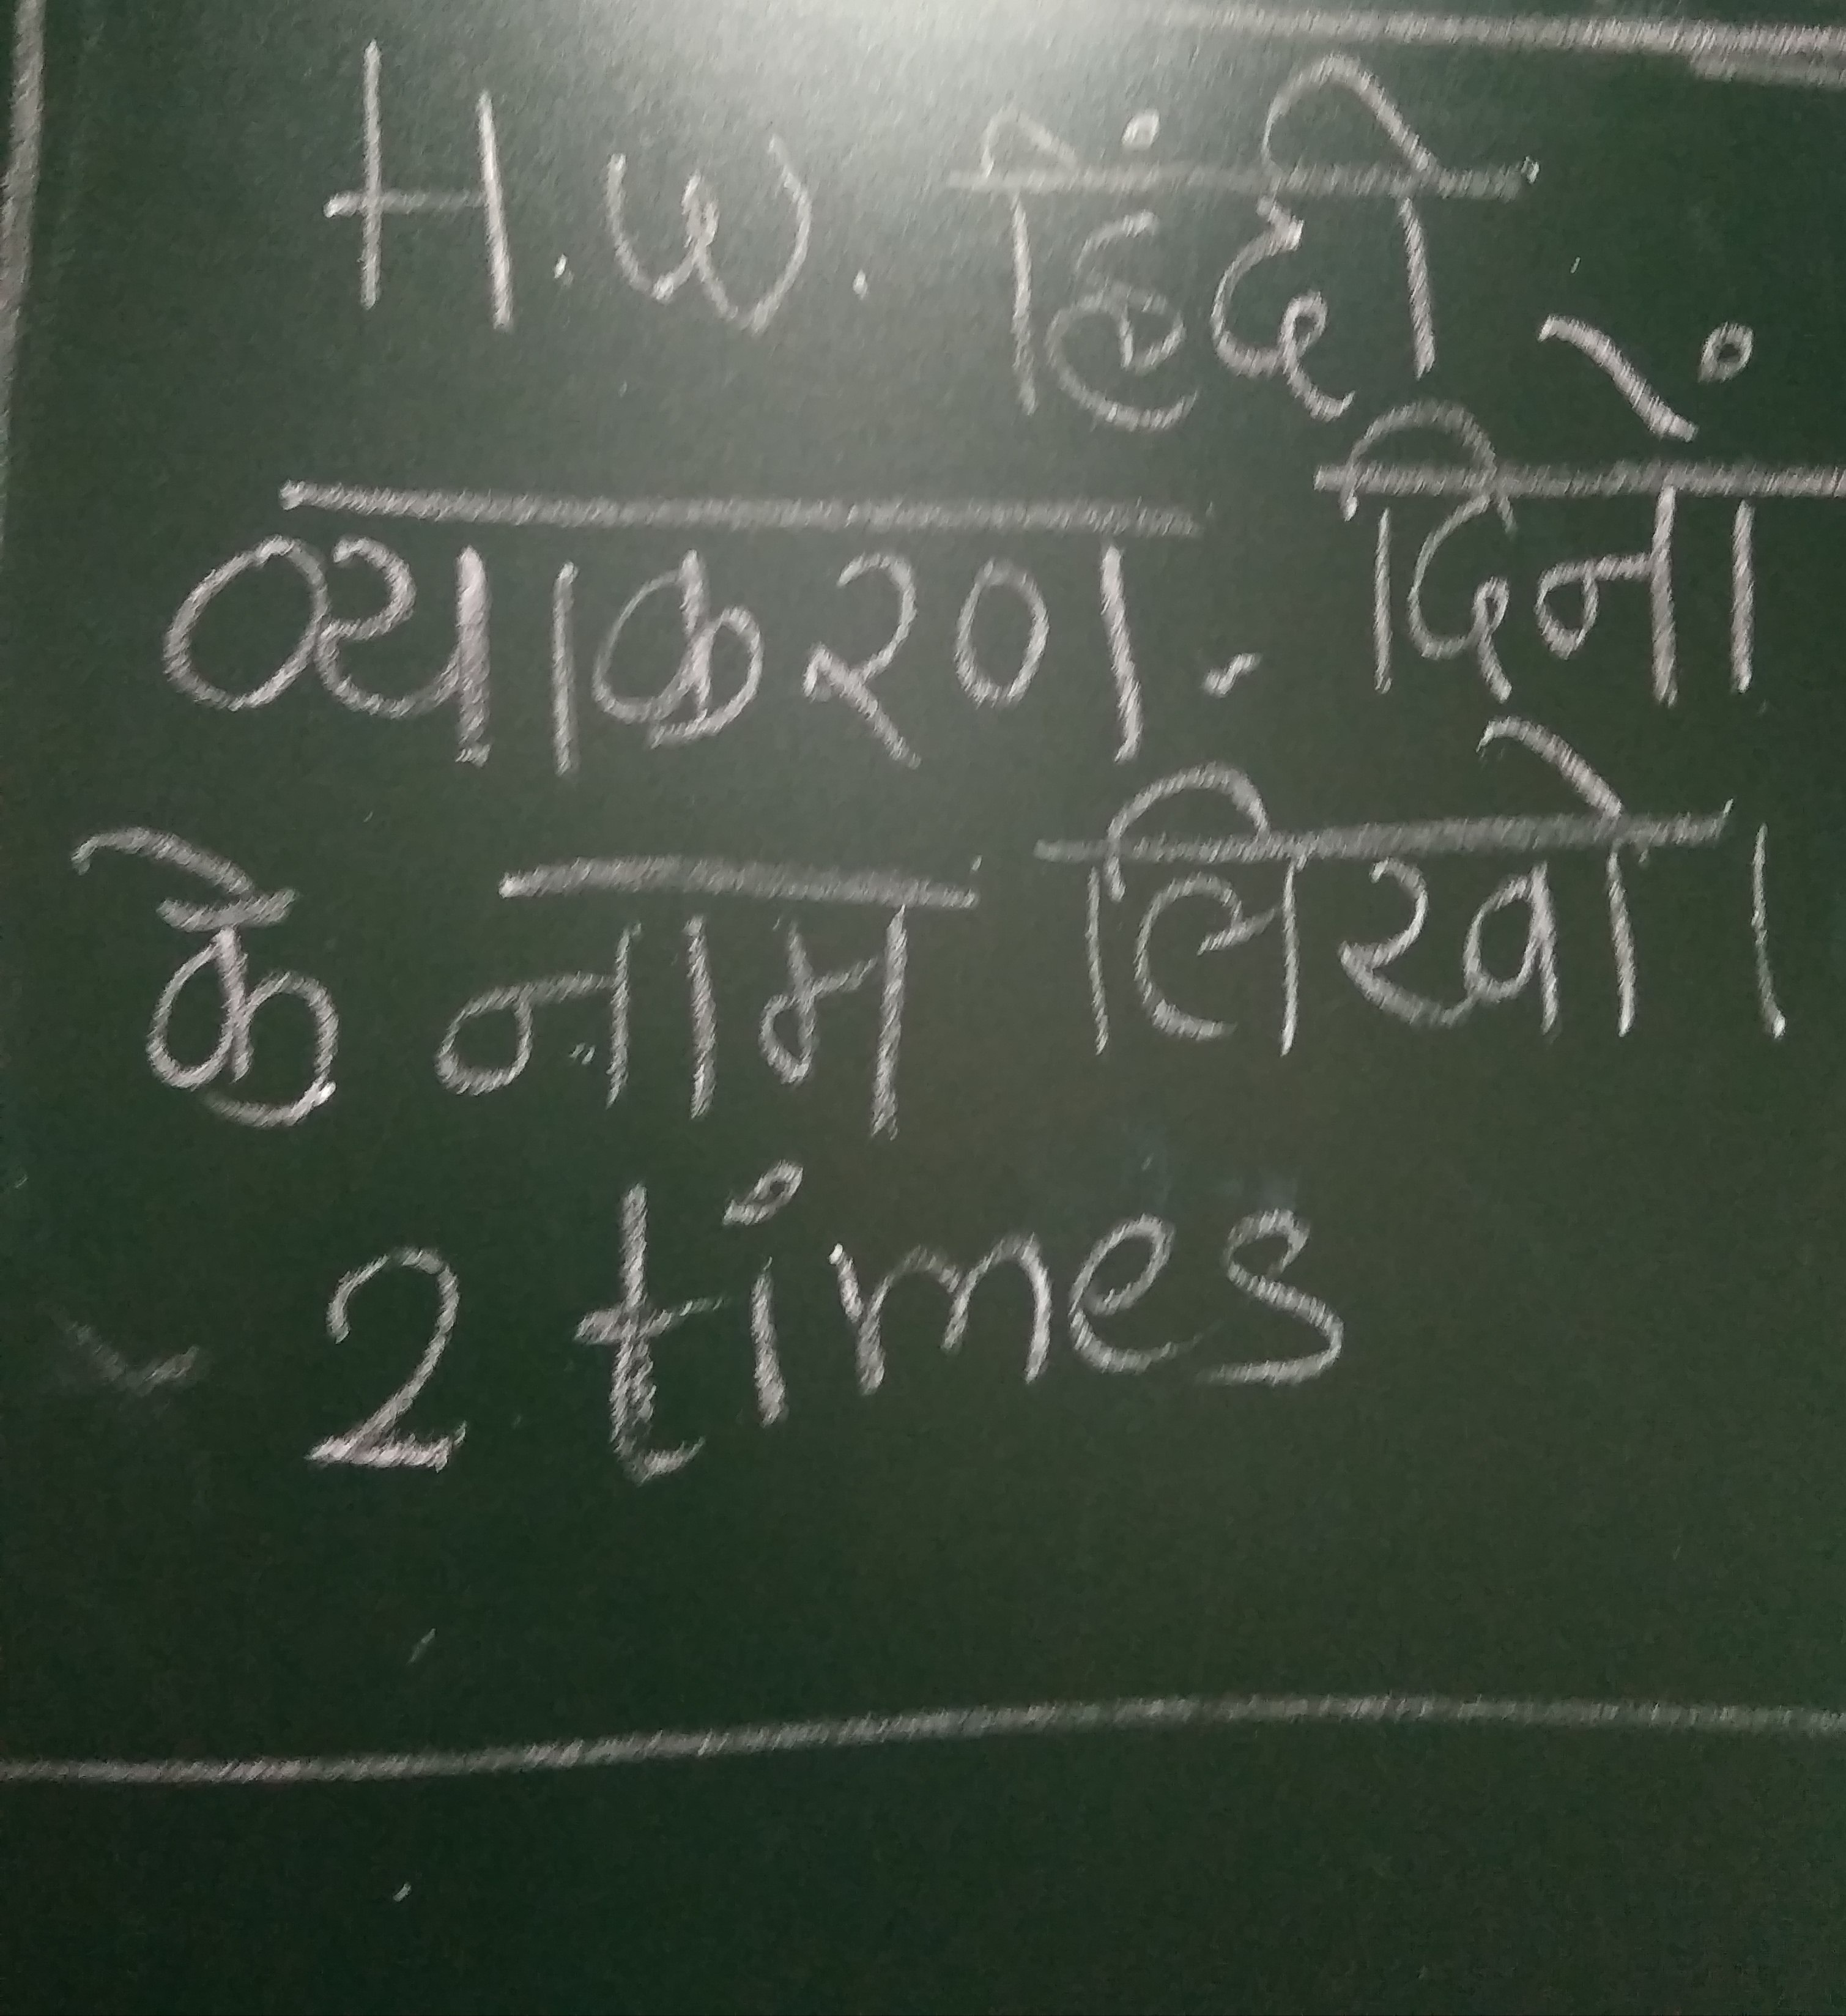 H.W. हिंदी
व्याकरण. दिनों
के नाम लिखो।
2 times